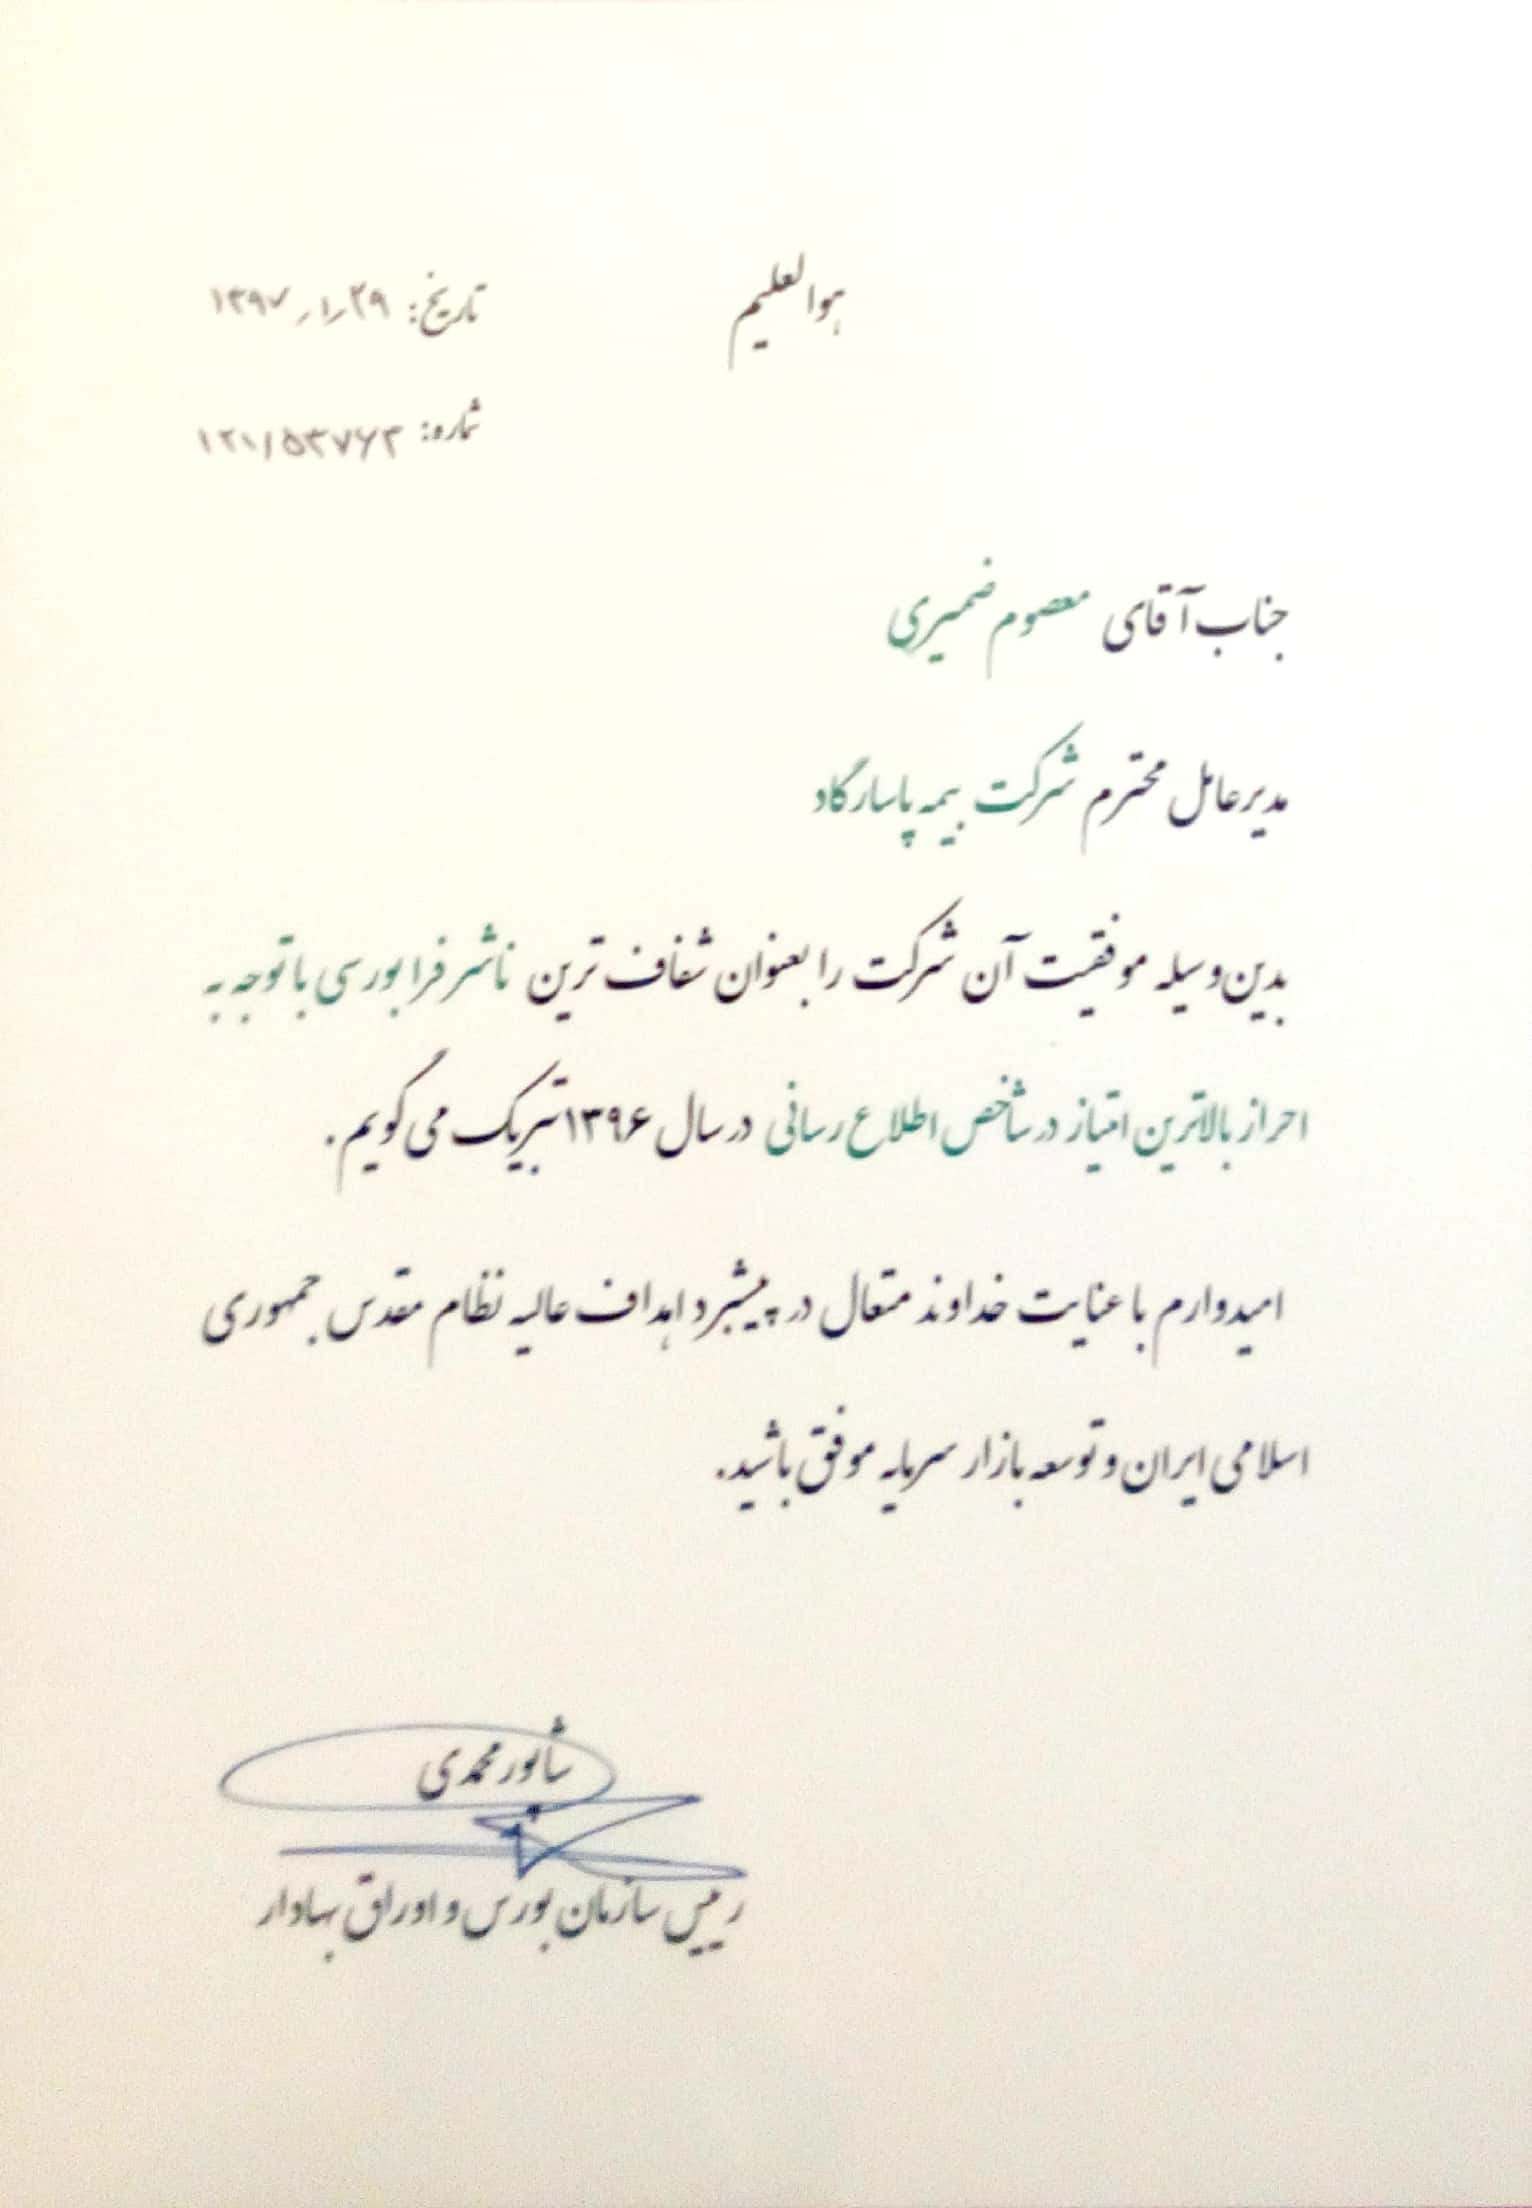 هوالعلیم
تاریخ: ۱۳۹۷/۱/۲۹
شماره: ۱۲۱/۵۳۷۶۳
جناب آقای معصوم ضمیری
مدیرعامل محترم شرکت بیمه پاسارگاد
بدین‌وسیله موفقیت آن شرکت را بعنوان شفاف ترین ناشر فرابورسی با توجه به
احراز بالاترین امتیاز در شاخص اطلاع رسانی در سال ۱۳۹۶ تبریک می گویم.
امیدوارم با عنایت خداوند متعال در پیشبرد اهداف عالیه نظام مقدس جمهوری
اسلامی ایران و توسعه بازار سرمایه موفق باشید.
شاپور محمدی
رییس سازمان بورس و اوراق بهادار